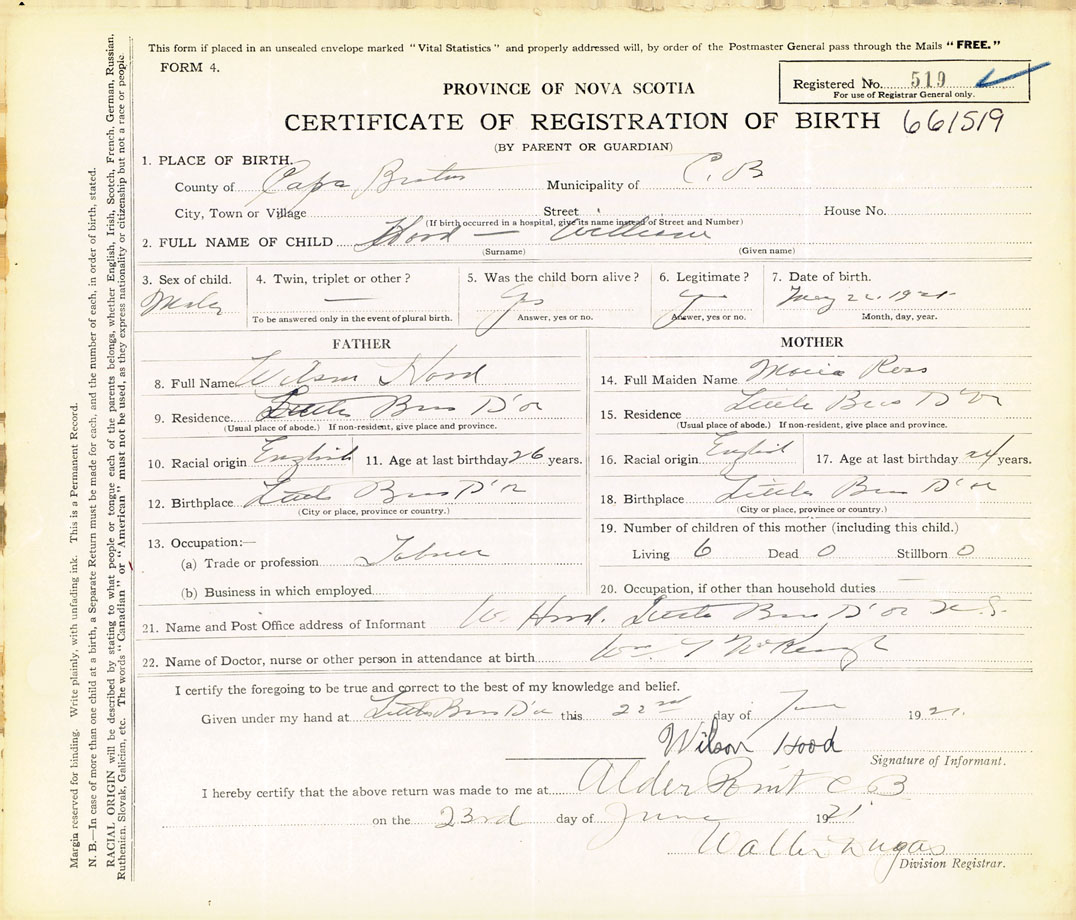 This form if placed in an unsealed envelope marked "Vital Statistics" and properly addressed will, by order of the Postmaster General pass through the Mails "FREE."
FORM 4.
Registered No. 519
For use of Registrar General only.
PROVINCE OF NOVA SCOTIA
CERTIFICATE OF REGISTRATION OF BIRTH 661519
(BY PARENT OR GUARDIAN)
1. PLACE OF BIRTH.
County of Cape Breton Municipality of C. B
City, Town or Village Street House No.
(If birth occurred in a hospital, give its name instead of Street and Number)
2. FULL NAME OF CHILD Hood — William
(Surname) (Given name)
3. Sex of child. 4. Twin, triplet or other? 5. Was the child born alive? 6. Legitimate? 7. Date of birth.
Male — yes yes May 22 1921
To be answered only in the event of plural birth. Answer, yes or no. Answer, yes or no. Month, day, year.
FATHER
8. Full Name Wilson Hood
9. Residence Little Bras D'or
(Usual place of abode.) If non-resident, give place and province.
10. Racial origin English 11. Age at last birthday 26 years.
12. Birthplace Little Bras D'or
(City or place, province or country.)
13. Occupation:—
(a) Trade or profession
(b) Business in which employed
MOTHER
14. Full Maiden Name Ross
15. Residence Little Bras D'or
(Usual place of abode.) If non-resident, give place and province.
16. Racial origin English 17. Age at last birthday 24 years.
18. Birthplace Little Bras D'or
(City or place, province or country.)
19. Number of children of this mother (including this child.)
Living 6 Dead 0 Stillborn 0
20. Occupation, if other than household duties —
21. Name and Post Office address of Informant W. Hood. Little Bras D'or N. S.
22. Name of Doctor, nurse or other person in attendance at birth Wm
I certify the foregoing to be true and correct to the best of my knowledge and belief.
Given under my hand at Little Bras D'or this 22nd day of June 1921.
Wilson Hood
Signature of Informant.
I hereby certify that the above return was made to me at Alder Point C B
on the 23rd day of June 1921
Dugas
Division Registrar.
Margin reserved for binding. Write plainly, with unfading ink. This is a Permanent Record.
N. B.—In case of more than one child at a birth, a Separate Return must be made for each, and the number of each, in order of birth, stated.
RACIAL ORIGIN will be described by stating to what people or tongue each of the parents belongs, whether English, Irish, Scotch, French, German, Russian,
Ruthenian, Slovak, Galician, etc. The words "Canadian" or "American" must not be used, as they express nationality or citizenship but not a race or people